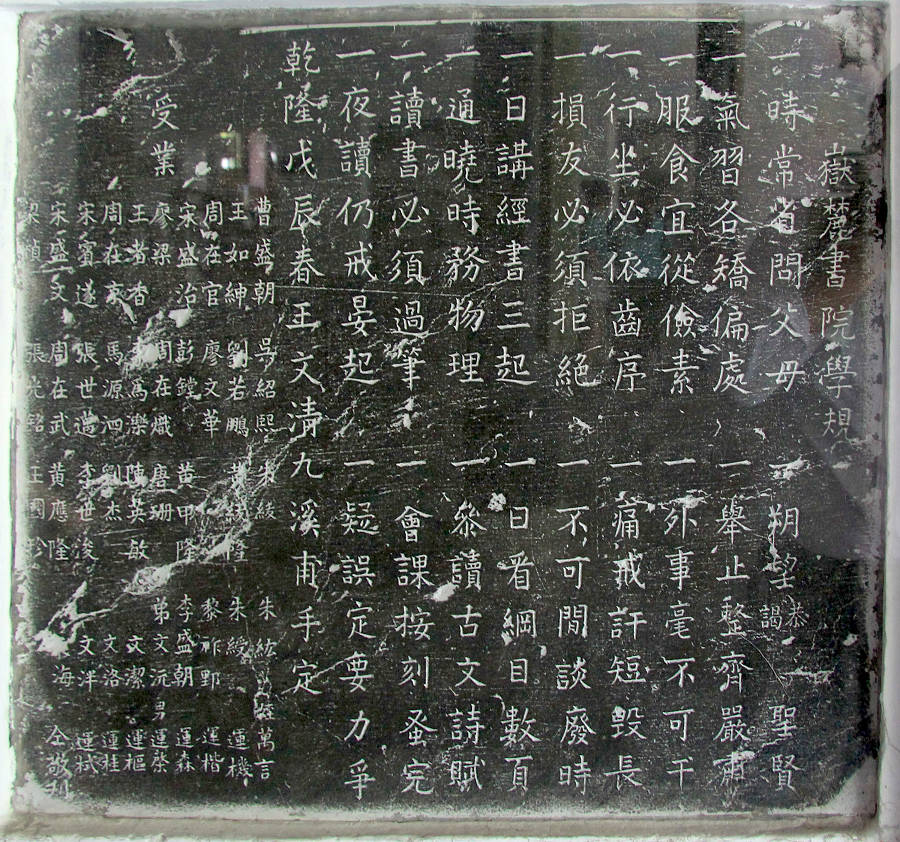 嶽麓書院學規
一時常省問父母 一朔望恭謁聖賢
一氣習各矯偏處 一舉止整齊嚴肅
一服食宜從儉素 一外事毫不可干
一行坐必依齒序 一痛戒訐短毀長
一損友必須拒絕 一不可閒談廢時
一日講經書三起 一日看綱目數頁
一通曉時務物理 一參讀古文詩賦
一讀書必須過筆 一會課按刻蚤完
一夜讀仍戒晏起 一疑誤定要力爭
乾隆戊辰春王文清九溪甫手定
受業
曹盛朝 吳紹熙 朱綾 朱紘 萬言
王如紳 劉若鵬 黃 隆 朱綬 運機
周在官 廖文華 黎祚野 運楷
宋盛治 彭鏜 黃甲隆 李盛朝 運森
廖梁 周在熾 唐珊 弟文沅 男運棨
王者香 萬樂 陳英敏 文潔 運樞
周在 馬源泗 劉杰 文洛 運桂
宋賓遂 張世邁 李世浚 文泮 運栻
宋盛文 周在武 黃應隆 文海 仝敬刊
梁 張光 王國